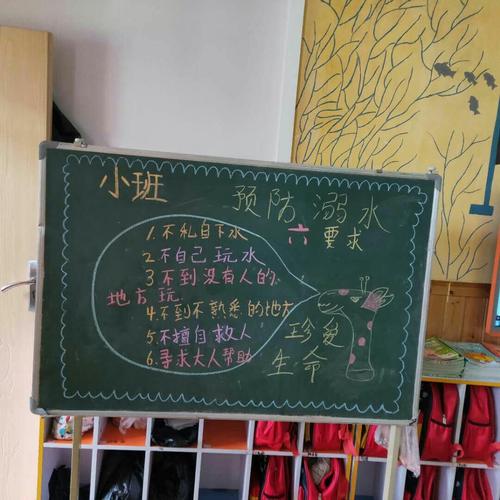 小班
预防溺水
六要求
1.不私自下水
2不自己玩水
3不到没有人的
地方玩
4.不到不熟悉的地方
5.不擅自救人
6.寻求大人帮助
珍爱
生命